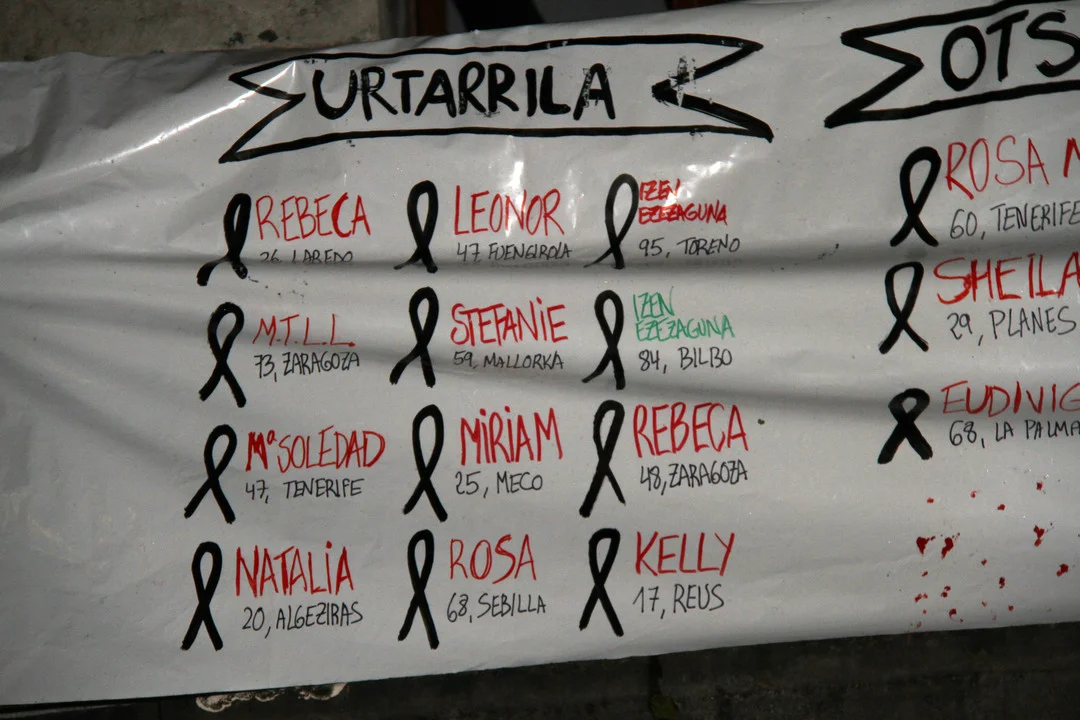 URTARRILA
REBECA
26, LAREDO
LEONOR
47, FUENGIROLA
IZEN
EZEZAGUNA
95, TORENO
M.T.L.L.
73, ZARAGOZA
STEFANIE
59, MALLORKA
IZEN
EZEZAGUNA
84, BILBO
Mª SOLEDAD
47, TENERIFE
MIRIAM
25, MECO
REBECA
48, ZARAGOZA
NATALIA
20, ALGEZIRAS
ROSA
68, SEBILLA
KELLY
17, REUS
OTS
ROSA
60, TENERIFE
SHEILA
29, PLANES
EUDIVIG
68, LA PALMA